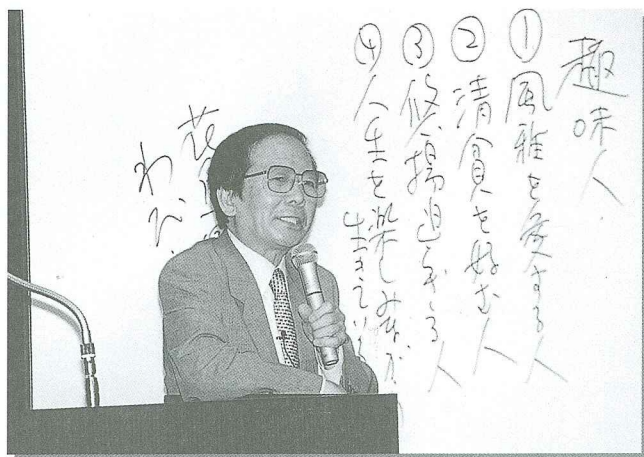 趣味人
①風雅を愛する人
②清貧を好む人
③悠揚迫らざる人
④人生を楽しみなが
生きてい
花
わび